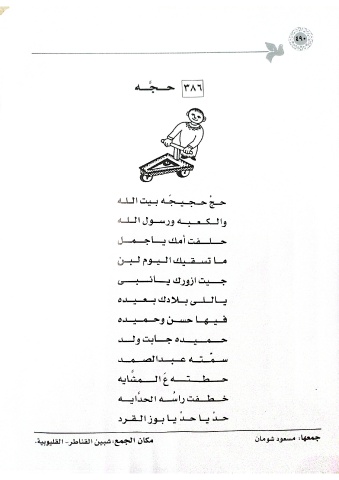 ٤٩٠
٣٨٦ حجَّه
حجْ حجيجَه بيت الله
والكعبه ورسول الله
حلفت أمك ياجمل
ما تسقيك اليوم لبن
جيت ازورك يانبى
ياللى بلادك بعيده
فيها حسن وحميده
حميده جابت ولد
سمّته عبدالصمد
حطته عَ المشَّايه
خطفت راسُه الحدَّايه
حدْ يا حدْ يا بوز القرد
جمعها: مسعود شومان
مكان الجمع: شبين القناطر- القليوبية.